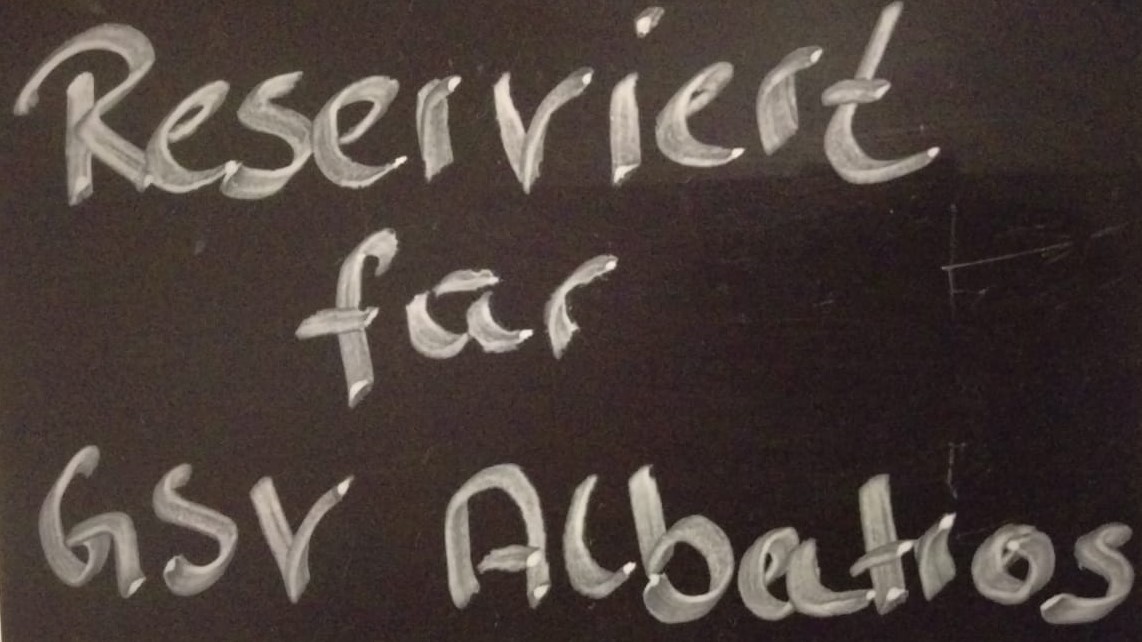 Reserviert
für
GSV Albatros